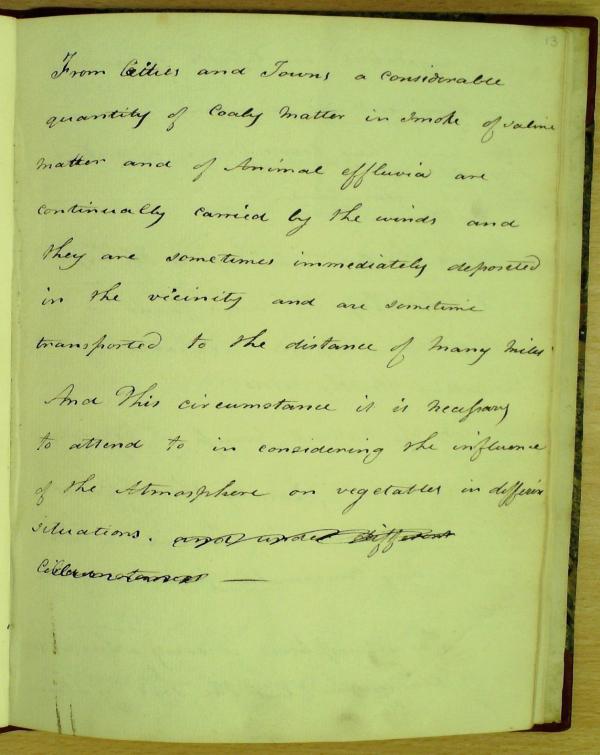 13
From Cities and Towns a considerable
quantity of Coaly Matter in smoke of saline
matter and of Animal effluvia are
continually carried by the winds and
they are sometimes immediately deposited
in the vicinity and are sometime
transported to the distance of many miles
And This circumstance it is necessary
to attend to in considering the influence
of the Atmosphere on vegetables in differin
situations. and under different
Circumstances —